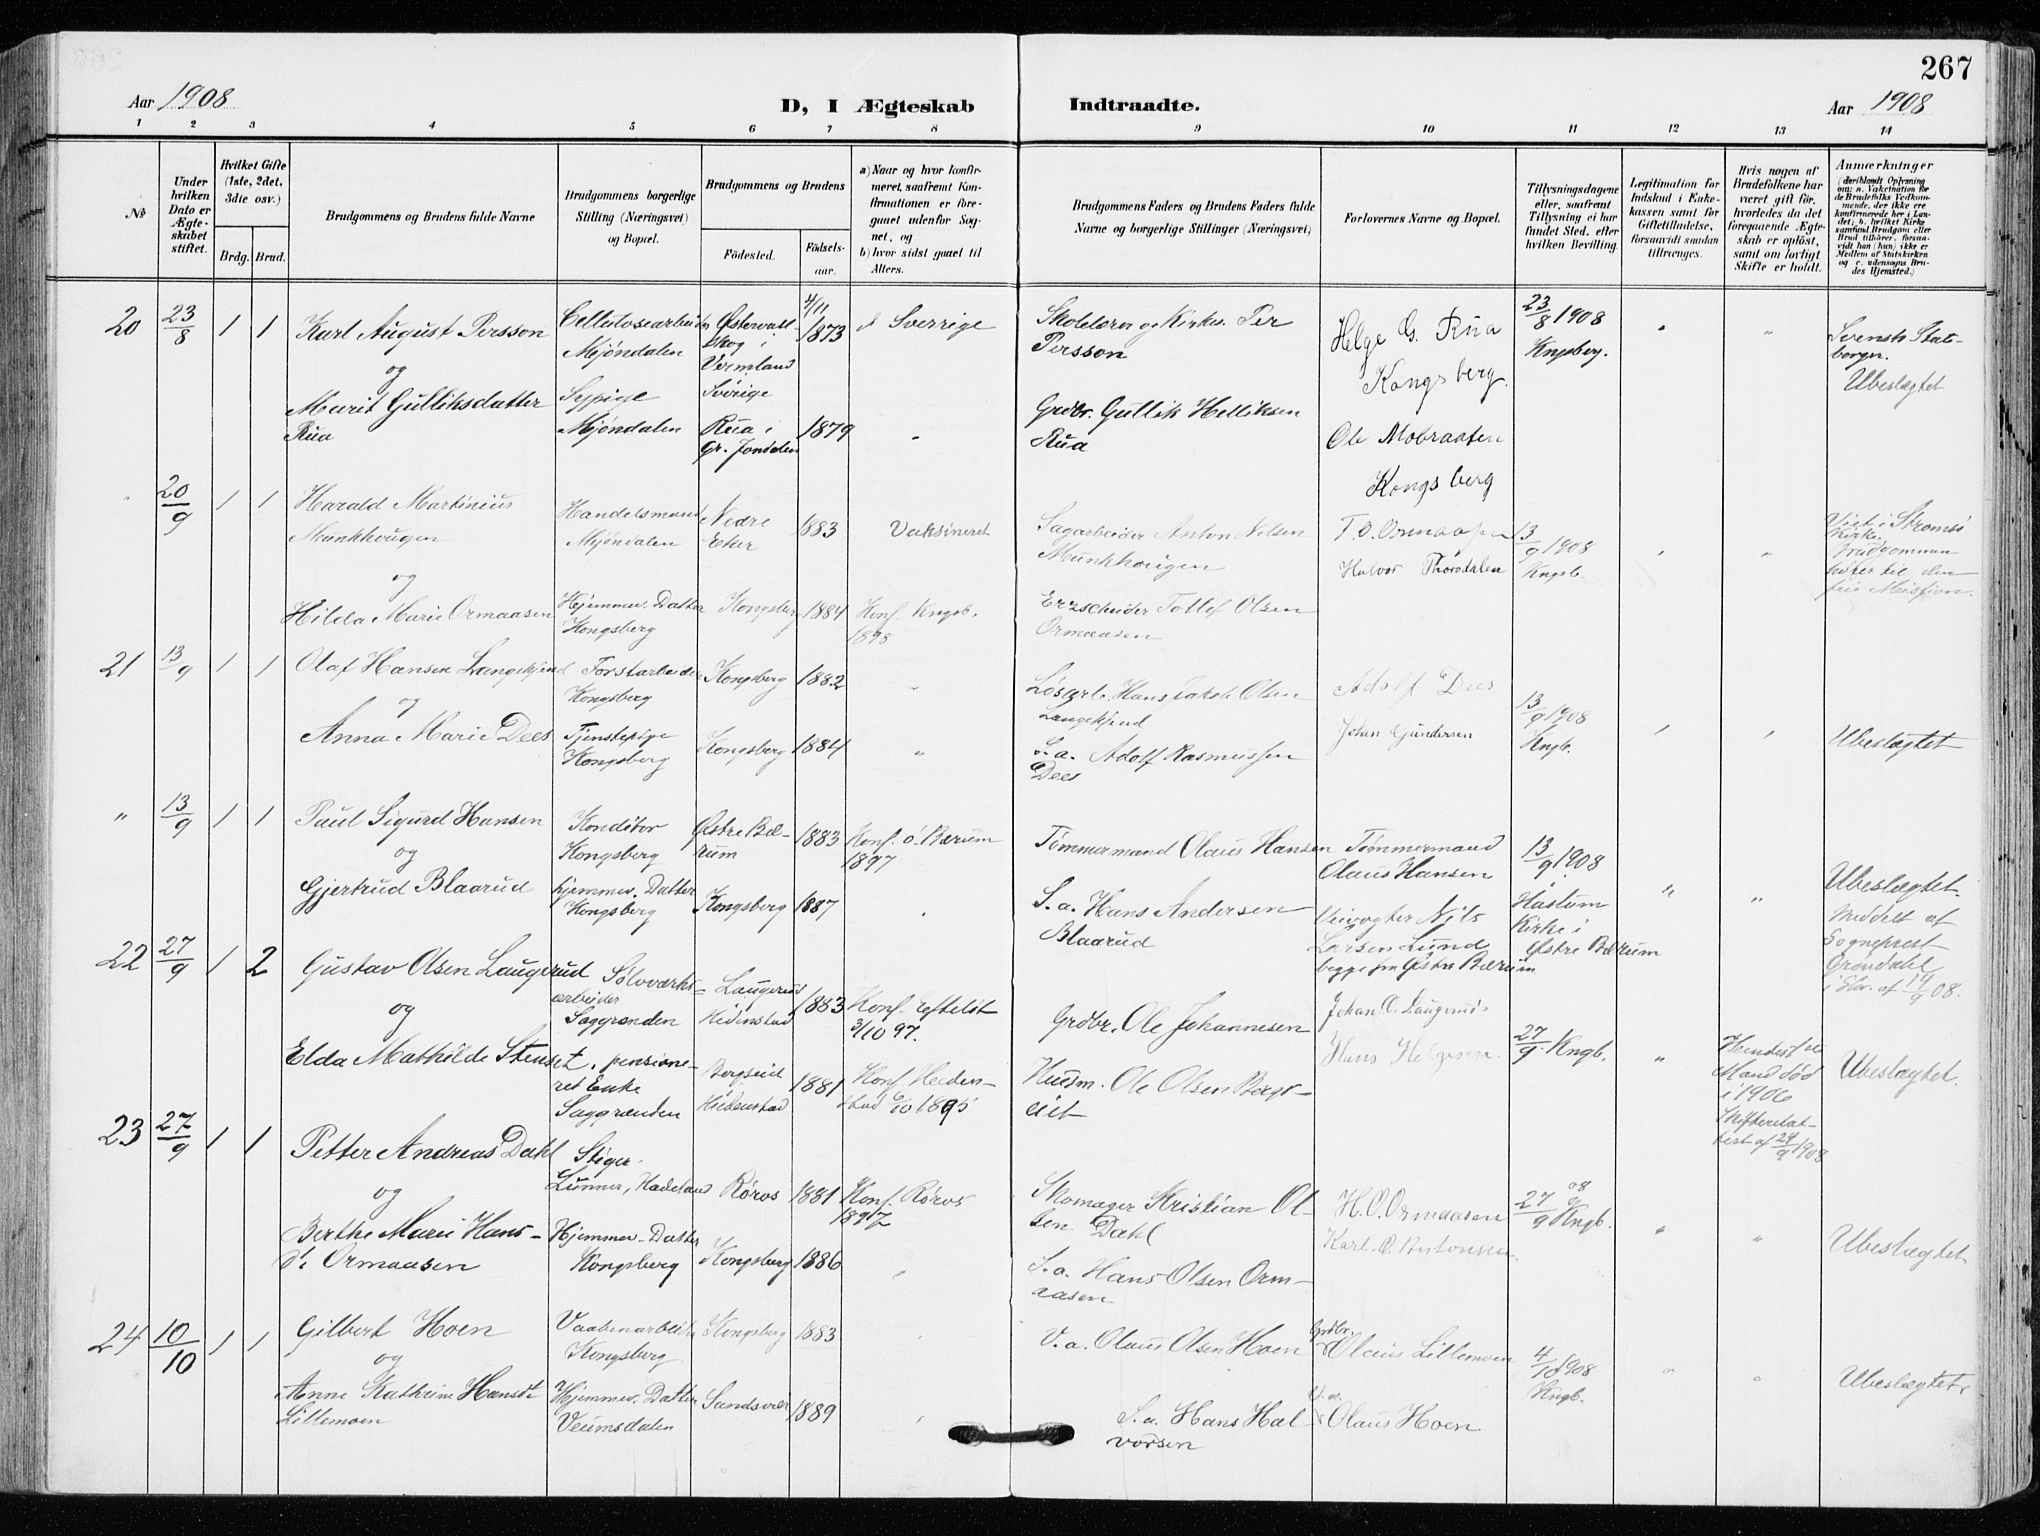 267
Aar 1908
D, I Ægteskab
Indtraadte.
Aar 1908
1 2 3 4 5 6 7 8 9 10 11 12 13 14
№
Under
hvilken
Dato er
Ægte-
skabet
stiftet.
Hvilket Gifte
(1ste, 2det,
3die osv.)
Brdg. Brud.
Brudgommens og Brudens fulde Navne
Brudgommens borgerlige
Stilling (Næringsvei)
og Bopæl.
Brudgommens og Brudens
Födested.
Födsels-
aar.
a) Naar og hvor konfir-
meret, saafremt Kon-
firmationen er fore-
gaaet udenfor Sog-
net, og
b) hvor sidst gaaet til
Alters.
Brudgommens Faders og Brudens Faders fulde
Navne og borgerlige Stillinger (Næringsvei)
Forlovernes Navne og Bopæl.
Tillysningsdagene
eller, saafremt
Tillysning ei har
fundet Sted, efter
hvilken Bevilling.
Legitimation for
Indskud i Enke-
kassen samt for
Giftetilladelse,
forsaavidt saadan
tiltrænges.
Hvis nogen af
Brudefolkene har
været gift för,
hvorledes da det
foregaaende Ægte-
skab er oplöst,
samt om lovligt
Skifte er holdt.
Anmærkninger
(deriblandt Oplysning
om: a. Vakcination for
de Brudefolks Vedkom-
mende, der ikke ere
konfirmerede her i Lan-
det; b. hvilket Kirke
samfund Brudgom eller
Brud tilhörer, forsaa-
vidt han (hun) ikke er
Medlem af Statskirken
og c. udensogns Bru-
des Hjemsted.)
20 23/8 1 1 Karl August Persson
og
Marit Gulliksdatter
Rua
Cellulosearbeider
Mjøndalen
Sypige
Mjøndalen
Østervall-
skog i
Vermland
Sverige
Rua i
Gr. Jondalen
4/11
1873
1879
Sverrige
"
Skolelærer og Kirkes. Per
Persson
Grdbr. Gullik Helliksen
Rua
Helge G. Rua
Kongsberg.
Ole Mobraaten
Kongsberg
23/8 1908
Kngsberg.
Svensk Stats-
borger.
Ubeslægtet
20/9 1 1 Harald Martinius
Munkhaugen
og
Hilda Marie Ormaasen
Handelsmand
Mjøndalen
Hjemmev. Datter
Kongsberg
Nedre
Eker
Kongsberg
1883
1884
Vaksineret
Konf. Kngsb.
1898
Sagarbeider Anton Nilsen
Munkhaugen
Erzscheider Tollef Olsen
Ormaasen
T. O. Ormaasen
Halvor Thorsdalen
13/9 1908
Kngsb.
Viet i Strømsø
Kirke,
Brudgommen
hører til den
frie Missjon.
21 13/9 1 1 Olaf Hansen Langekjend
og
Anna Marie Dees
Forstarbeider
Kongsberg
Tjenstepige
Kongsberg
Kongsberg
Kongsberg
1882
1884
"
"
Løsarb. Hans Jakob Olsen
Langekjend
S. a. Adolf Rasmussen
Dees
Adolf Dees
Johan Gundersen
13/9 1908
Kngb.
Ubeslægtet
" 13/9 1 1 Paul Sigurd Hansen
og
Gjertrud Blaarud
Konditor
Kongsberg
hjemmev. Datter
Kongsberg
Østre Bæ-
rum
Kongsberg
1883
1887
Konf. Ø. Bærum
1897
Tømmermand Olaus Hansen
S. a. Hans Andersen
Blaarud
Tømmermand
Olaus Hansen
Veivogter Nils
Larsen Lund
begge fra Østre Bærum
13/9 1908
Haslum
Kirke i
Østre Bærum
Ubeslægtet.
Meddelt af
Sogneprest
Grøndahl
i Skr. af 19/9 08.
22 27/9 1 2 Gustav Olsen Laugerud
og
Elda Mathilde Stenset,
Sølvverks-
arbeider
Saggrenden
pensione-
ret Enke
Saggrenden
Laugerud
Hedenstad
Bergseid
Hedenstad
1883
1881
Konf. Efteløt
3/10 97.
Konf. Heden-
stad 6/10 1895
Grdbr. Ole Johannesen
Husm. Ole Olsen Bergs-
eid
Johan O. Laugerud
Hans Helgesen
27/9 Kngb.
Hendes før
Mand død
i 1906
Skifteretat-
test af 24/9 1908
Ubeslægtet.
23 27/9 1 1 Petter Andreas Dahl
og
Berthe Marie Hans-
dt. Ormaasen
Stiger
Lunner, Hadeland
Hjemmev. Datter
Kongsberg
Røros
Kongsberg
1881
1886
Konf. Røros
1897
Skomager Kristian Ol-
sen Dahl
S. a. Hans Olsen Orm-
aasen
H. O. Ormaasen
Karl O. Antonsen
27/9 08
Kngb.
Ubeslægtet
24 10/10 1 1 Gilbert Hoen
og
Anne Kathrine Hansdt.
Lillemoen
Vaabenarbeider
Kongsberg
Hjemmev. Datter
Veumsdalen
Kongsberg
Sandsvær
1883
1889
V. a. Olaus Olsen Hoen
S. a. Hans Hal-
vorsen
Grdbr.
Olaus Lillemoen
V. a.
Olaus Hoen
4/10 1908
Kngb.
Ubeslægtet.